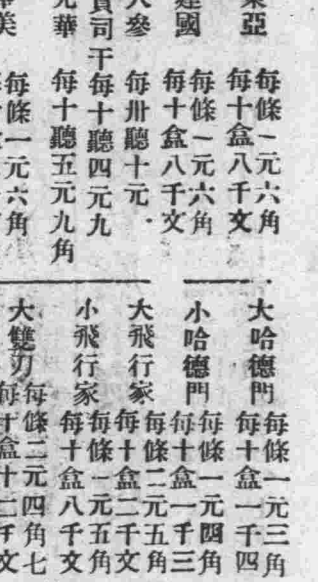 東亞
每條一元六角
每十盒八千文
建國
每條一元六角
每十盒八千文
人參
每卅聽十元
賓司干
每十聽四元九
光華
每十聽五元九角
美
每條一元六角
大哈德門
每條一元三角
每十盒一千四
小哈德門
每條一元四角
每十盒一千三
大飛行家
每條二元五角
每十盒二千文
小飛行家
每條一元五角
每十盒八千文
大雙刀
每條二元四角七
每十盒十二千文